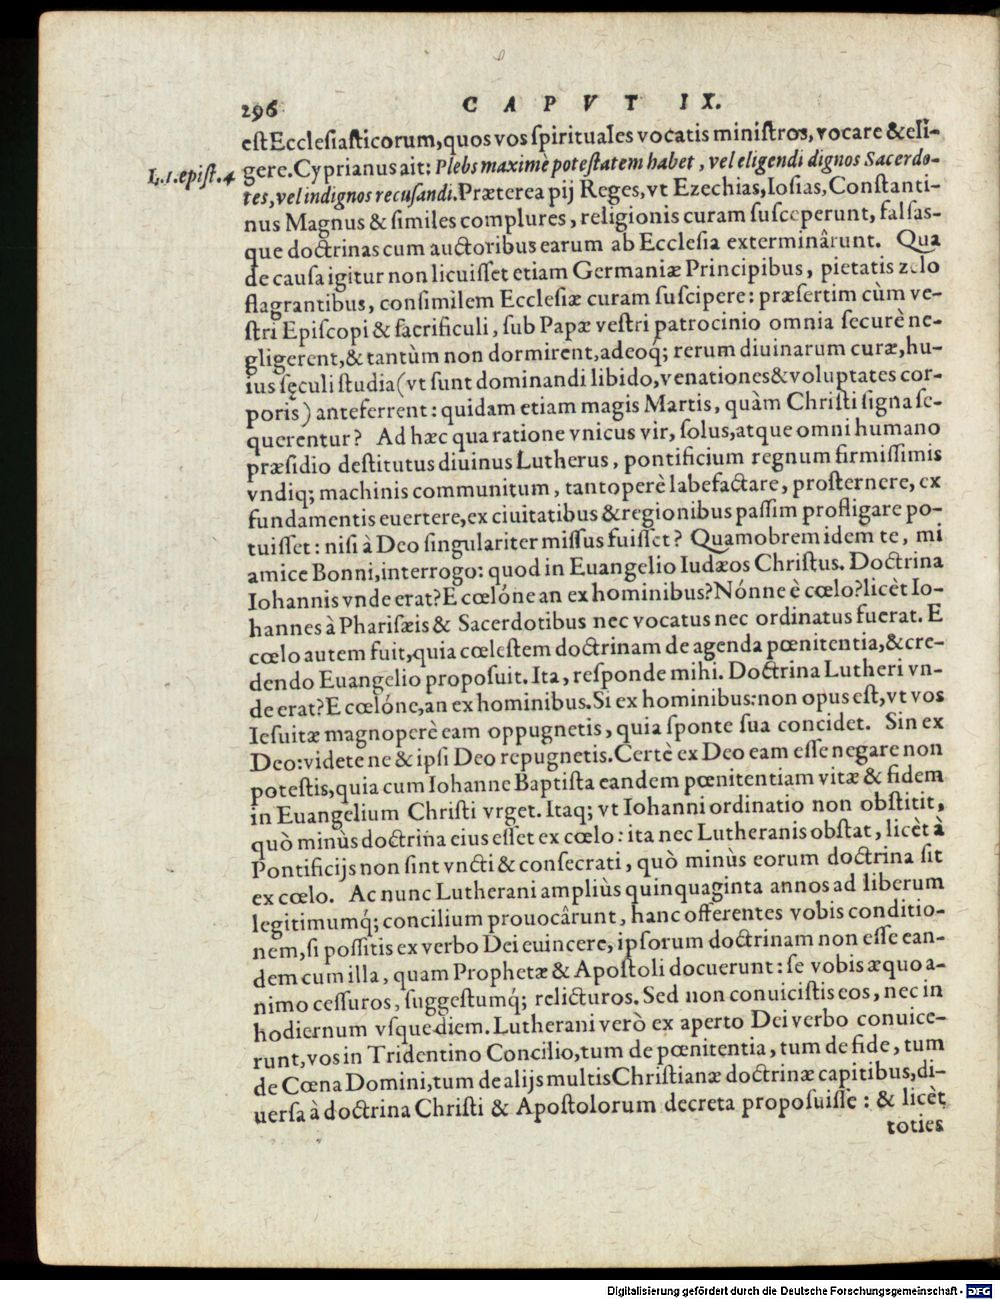 296 CAPVT IX.
est Ecclesiasticorum, quos vos spirituales vocatis ministros, vocare & eli-
L. 1. epist. 4 gere. Cyprianus ait: Plebs maximè potestatem habet, vel eligendi dignos Sacerdo-
tes, vel indignos recusandi. Præterea pij Reges, vt Ezechias, Iosias, Constanti-
nus Magnus & similes complures, religionis curam susceperunt, falsas-
que doctrinas cum auctoribus earum ab Ecclesia exterminârunt. Qua
de causa igitur non licuisset etiam Germaniæ Principibus, pietatis zelo
flagrantibus, consimilem Ecclesiæ curam suscipere: præsertim cùm ve-
stri Episcopi & sacrificuli, sub Papæ vestri patrocinio omnia securè ne-
gligerent, & tantùm non dormirent, adeoq́; rerum diuinarum curæ, hu-
ius sęculi studia (vt sunt dominandi libido, venationes & voluptates cor-
poris) anteferrent: quidam etiam magis Martis, quàm Christi signa se-
querentur? Ad hæc qua ratione vnicus vir, solus, atque omni humano
præsidio destitutus diuinus Lutherus, pontificium regnum firmissimis
vndiq; machinis communitum, tantoperè labefactare, prosternere, ex
fundamentis euertere, ex ciuitatibus & regionibus passim profligare po-
tuisset: nisi à Deo singulariter missus fuisset? Quamobrem idem te, mi
amice Bonni, interrogo: quod in Euangelio Iudæos Christus. Doctrina
Iohannis vnde erat? E cœlóne an ex hominibus? Nónne è cœlo? licèt Io-
hannes à Pharisæis & Sacerdotibus nec vocatus nec ordinatus fuerat. E
cœlo autem fuit, quia cœlestem doctrinam de agenda pœnitentia, & cre-
dendo Euangelio proposuit. Ita, responde mihi. Doctrina Lutheri vn-
de erat? E cœlóne, an ex hominibus. Si ex hominibus: non opus est, vt vos
Iesuitæ magnoperè eam oppugnetis, quia sponte sua concidet. Sin ex
Deo: videte ne & ipsi Deo repugnetis. Certè ex Deo eam esse negare non
potestis, quia cum Iohanne Baptista eandem pœnitentiam vitæ & fidem
in Euangelium Christi vrget. Itaq; vt Iohanni ordinatio non obstitit,
quò minùs doctrina eius esset ex cœlo: ita nec Lutheranis obstat, licèt à
Pontificijs non sint vncti & consecrati, quò minùs eorum doctrina sit
ex cœlo. Ac nunc Lutherani ampliùs quinquaginta annos ad liberum
legitimumq́; concilium prouocârunt, hanc offerentes vobis conditio-
nem, si possitis ex verbo Dei euincere, ipsorum doctrinam non esse ean-
dem cum illa, quam Prophetæ & Apostoli docuerunt: se vobis æquo a-
nimo cessuros, suggestumq́; relicturos. Sed non conuicistis eos, nec in
hodiernum vsque diem. Lutherani verò ex aperto Dei verbo conuice-
runt, vos in Tridentino Concilio, tum de pœnitentia, tum de fide, tum
de Cœna Domini, tum de alijs multis Christianæ doctrinæ capitibus, di-
uersa à doctrina Christi & Apostolorum decreta proposuisse: & licèt
toties
Digitalisierung gefördert durch die Deutsche Forschungsgemeinschaft - DFG